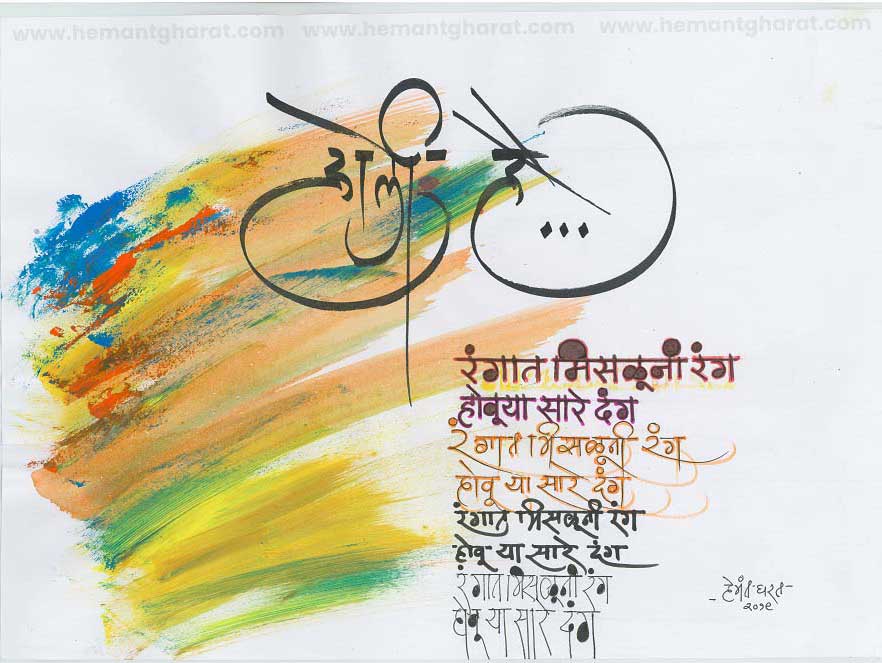 www.hemantgharat.com www.hemantgharat.com www.hemantgharat.com
होली है...
रंगात मिसळूनी रंग
होवूया सारे दंग
रंगात मिसळूनी रंग
होवू या सारे दंग
रंगात मिसळूनी रंग
होवू या सारे दंग
रंगात मिसळूनी रंग
होवू या सारे दंग
- हेमंत घरत -
२०१९